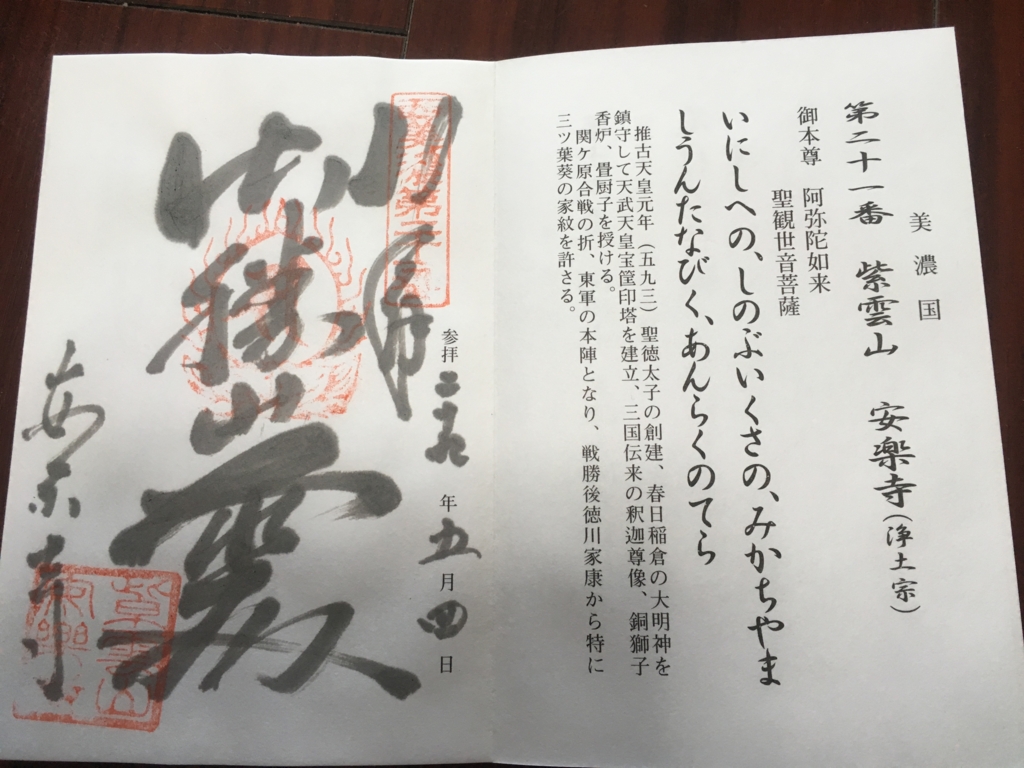 美濃国
第二十一番 紫雲山 安楽寺(浄土宗)
御本尊 阿弥陀如来
聖観世音菩薩
いにしへの、しのぶいくさの、みかちやま
しうんたなびく、あんらくのてら
推古天皇元年（五九三）聖徳太子の創建、春日稲倉の大明神を
鎮守して天武天皇宝筐印塔を建立、三国伝来の釈迦尊像、銅獅子
香炉、畳厨子を授ける。
関ケ原合戦の折、東軍の本陣となり、戦勝後徳川家康から特に
三ツ葉葵の家紋を許さる。
参拝 二九 年 五 月 四 日
御勝山
安楽寺